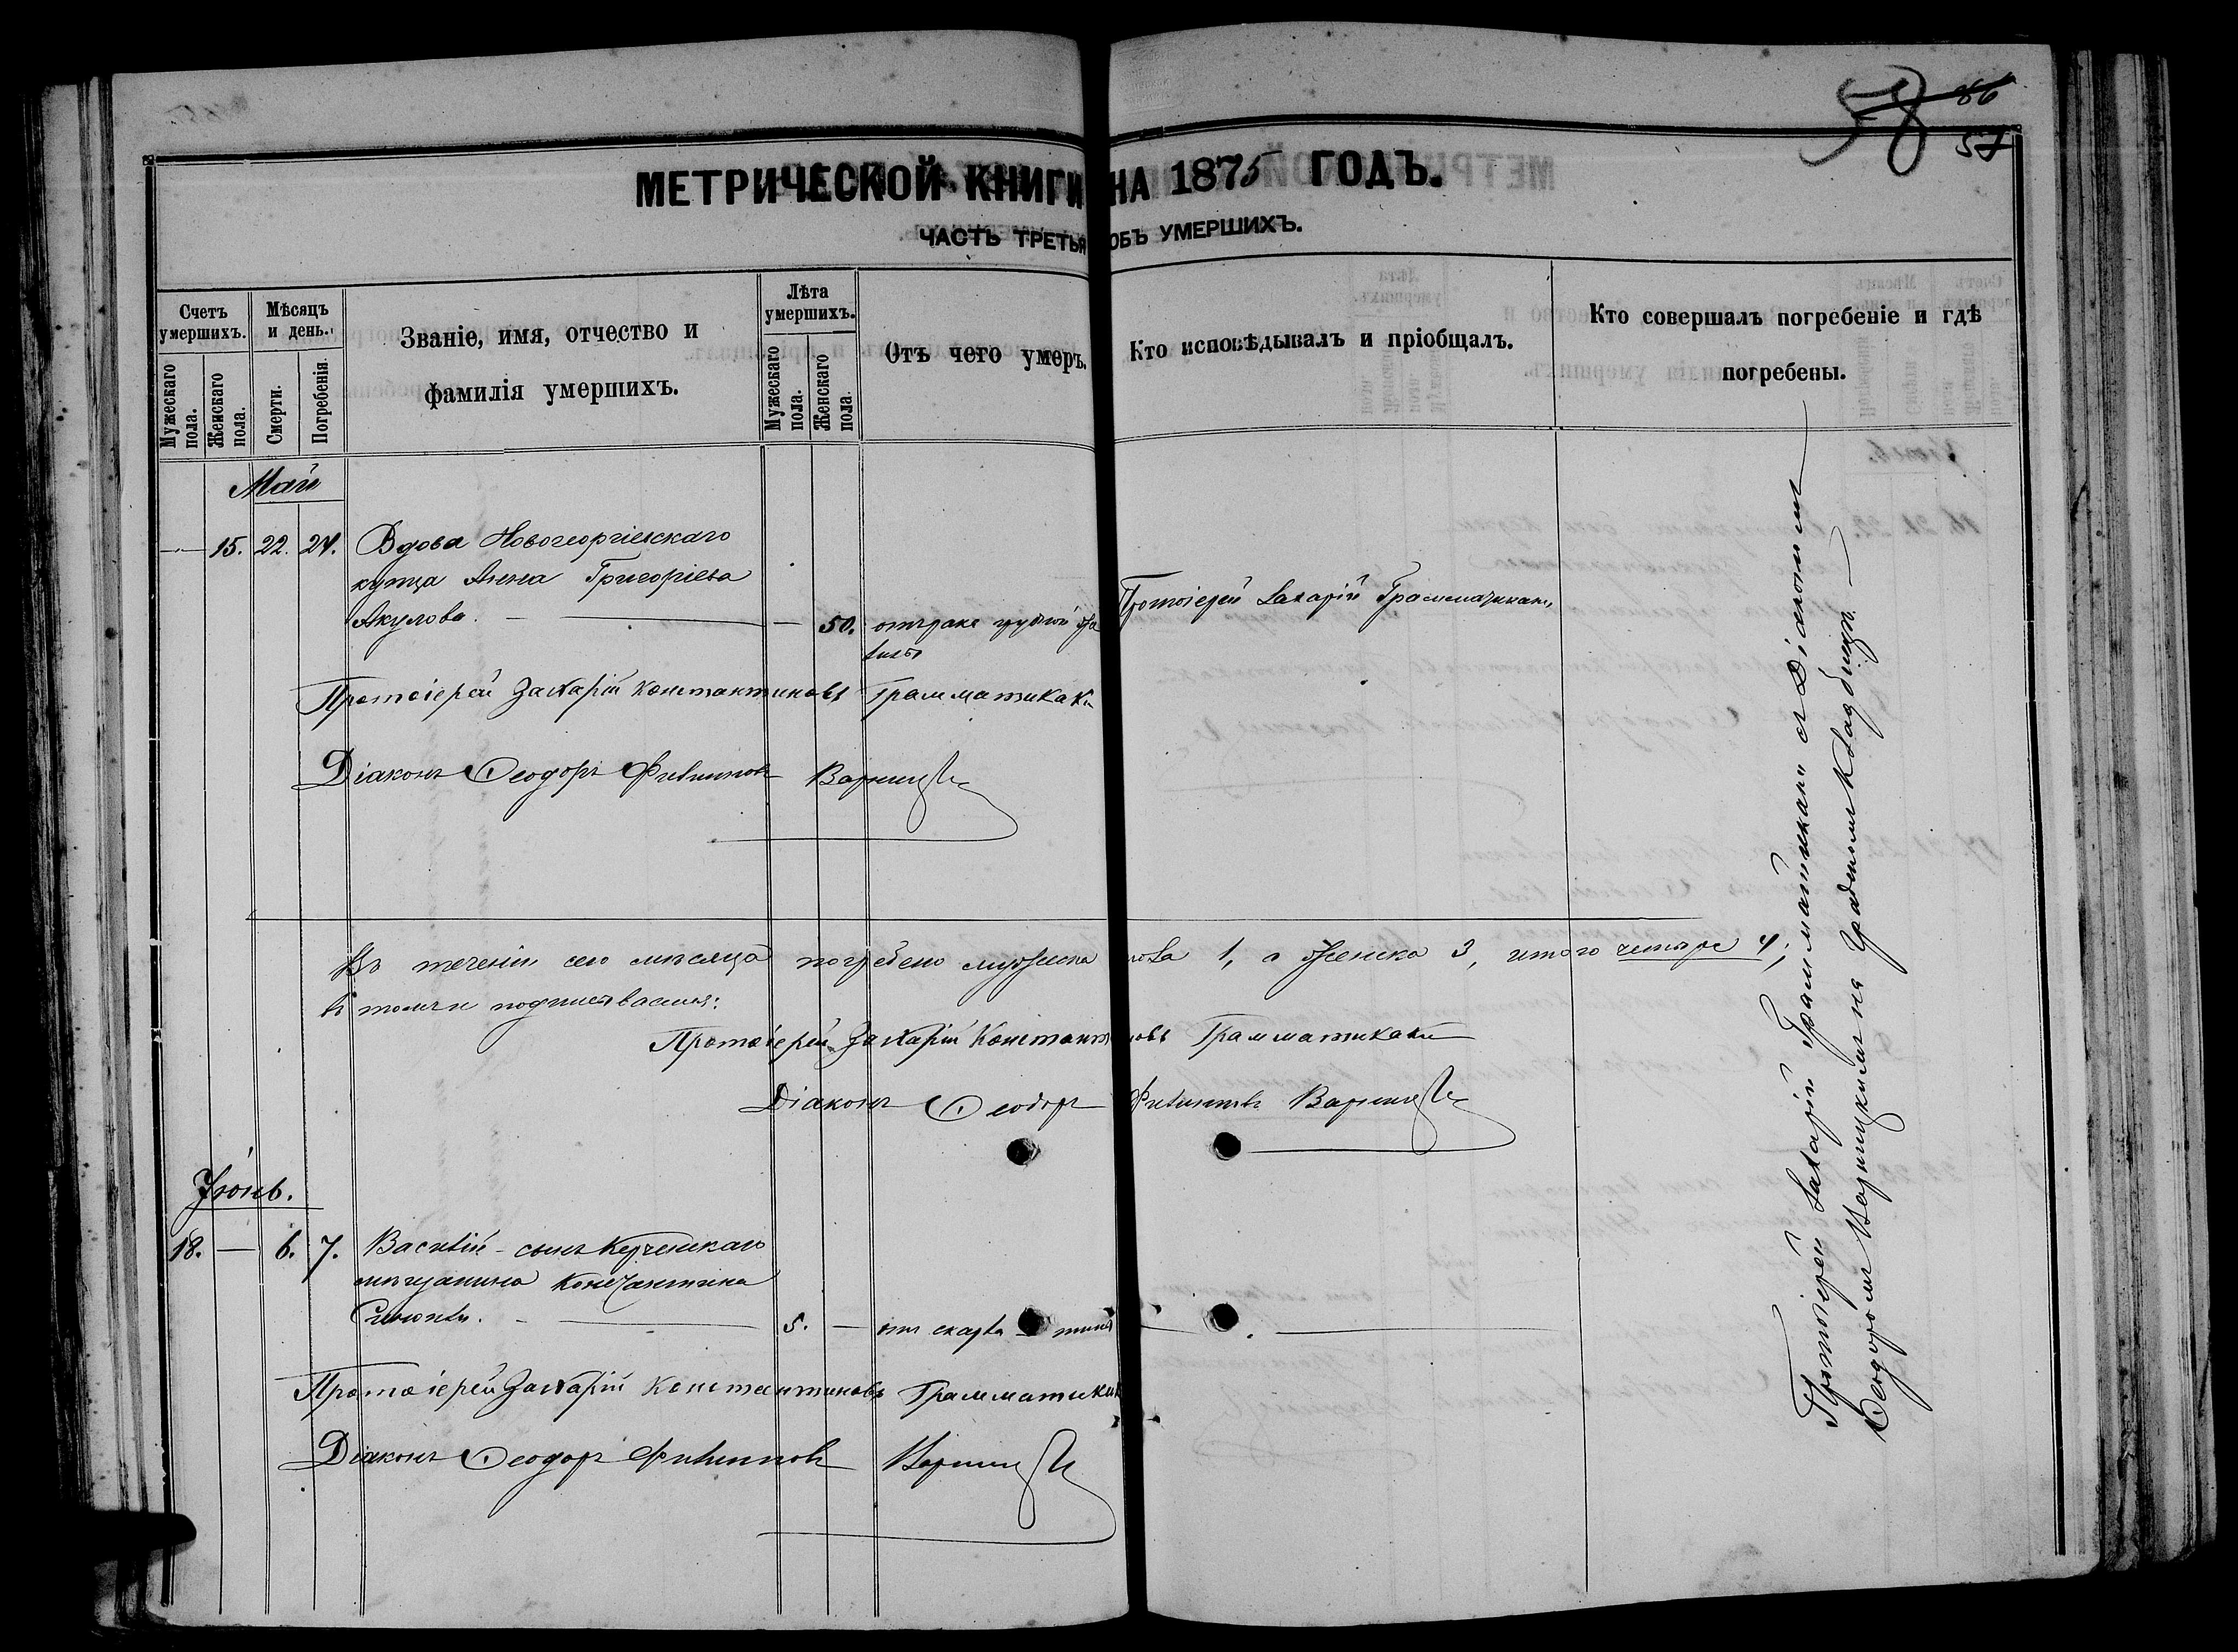 86
58
57
МЕТРИЧЕСКОЙ КНИГИ НА 1875 ГОДЪ.
ЧАСТЬ ТРЕТЬЯ ОБЪ УМЕРШИХЪ.
Счетъ умершихъ.
Мужескаго пола.
Женскаго пола.
Мѣсяцъ и день.
Смерти.
Погребенія.
Званіе, имя, отчество и
фамилія умершихъ.
Лѣта умершихъ.
Мужескаго пола.
Женскаго пола.
Отъ чего умеръ.
Кто исповѣдывалъ и пріобщалъ.
Кто совершалъ погребеніе и гдѣ
погребены.
Май
— 15. 22. 24. Вдова Новогеоргіевскаго
купца Анна Григоріева
Акулова. — — 50. отъ рака грудной
Протоіерей Захарій Грамматикаки
Протоіерей Захарій Константиновъ Грамматикаки
Діаконъ Ѳеодоръ Филипповъ
Въ теченіи сего мѣсяца погребено мужеска пола 1, а женска 3, итого четыре 4;
въ томъ и подписываемся:
Протоіерей Захарій Константиновъ Грамматикаки
Діаконъ Ѳеодоръ Филипповъ
Іюнь.
18. — 6. 7. Василій - сынъ Керченскаго
мѣщанина Константина
5. — отъ скарлатины — —
Протоіерей Захарій Константиновъ Грамматикаки
Діаконъ Ѳеодоръ Филипповъ
Протоіерей Захарій Грамматикаки съ Діакономъ
Ѳеодоромъ Варницкимъ на градскомъ кладбищѣ. —